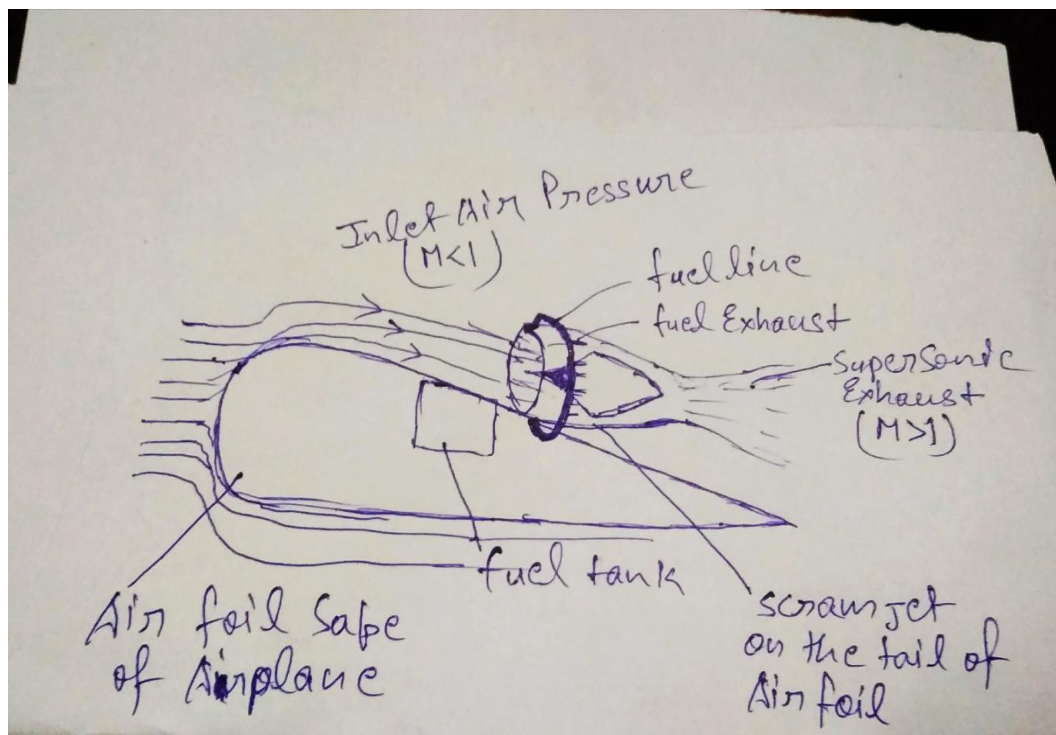 Inlet Air Pressure
(M<1)
fuel line
fuel Exhaust
Supersonic
Exhaust
(M>1)
fuel tank
Air foil Sape
of Airplane
scramjet
on the tail of
Air foil